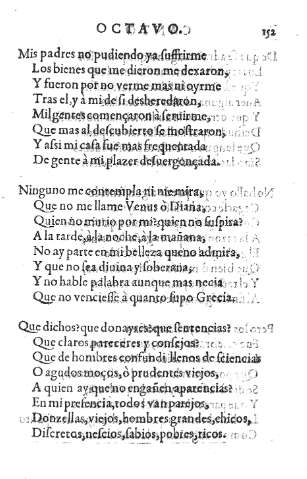 OCTAVO. 152
Mis padres no pudiendo ya suffrirme
Los bienes que me dieron me dexaron,
Y fueron por no verme mas ni oyrme
Tras el, y à mi de si desheredaron,
Mil gentes començaron à seruirme,
Que mas al descubierto se mostraron,
Y assi mi casa fue mas frequentada
De gente à mi plazer desuergonçada.
Ninguno me contempla ni me mira,
Que no me llame Venus ò Diana,
Quien no murio por mi: quien no suspira?
A la tarde, à la noche, à la mañana,
No ay parte en mi belleza que no admira,
Y que no sea diuina y soberana,
Y no hable palabra aunque mas necia
Que no venciesse à quanto supo Grecia.
Que dichos? que donayres? que sentencias?
Que claros pareceres y consejos?
Que de hombres confundi llenos de sciencias
O agudos moços, ò prudentes viejos,
A quien ay que no engañen aparencias?
En mi presencia, todos van parejos,
Donzellas, viejos, hombres grandes, chicos,
Discretos, nescios, sabios, pobres, ricos.